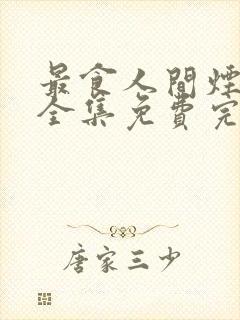 最食人間煙
全集免費完
唐家三少